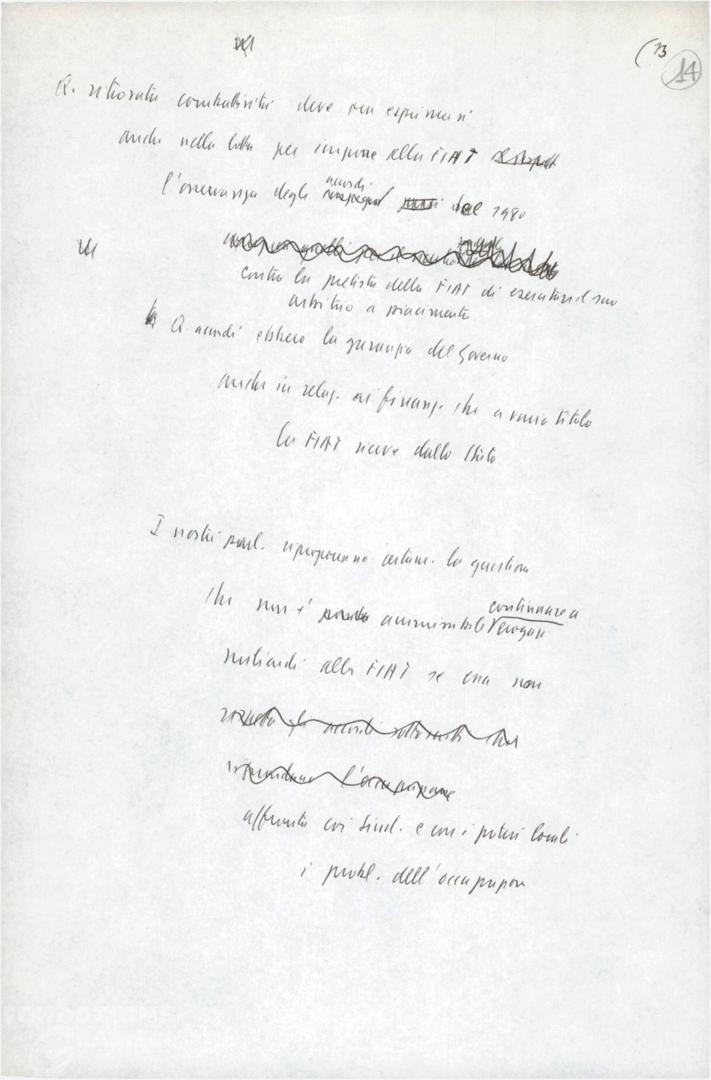 (13
14
Q. ritrovata combattività deve ora esprimersi
anche nella lotta per imporre alla FIAT
l'osservanza degli accordi del 1980
contro la pretesa della FIAT di esercitare il suo
arbitrio a piacimento
Q. accordi ebbero la garanzia del Governo
anche in relaz. ai finanz. che a vario titolo
la FIAT riceve dallo Stato
I nostri parl. ripropongono la questione
che non è ammissibile continuare a
erogare
miliardi alla FIAT se essa non
affronta coi sind. e con i poteri locali
i probl. dell'occupazione